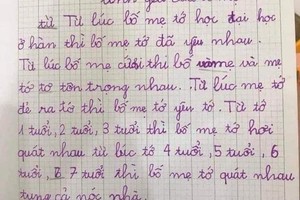 từ Từ lúc bố mẹ tớ học đại học
ở hàn thì bố mẹ tớ đã yêu nhau.
Từ lúc bố mẹ cưới thì bố và mẹ
tớ tôn trọng nhau. Từ lúc mẹ tớ
đẻ ra tớ thì bố mẹ tớ yêu tớ. Từ tớ
1 tuổi, 2 tuổi, 3 tuổi thì bố mẹ tớ hơi
quát nhau từ lúc tớ 4 tuổi, 5 tuổi, 6
tuổi, 7 tuổi thì bố mẹ tớ quát nhau
tung cả nóc nhà.